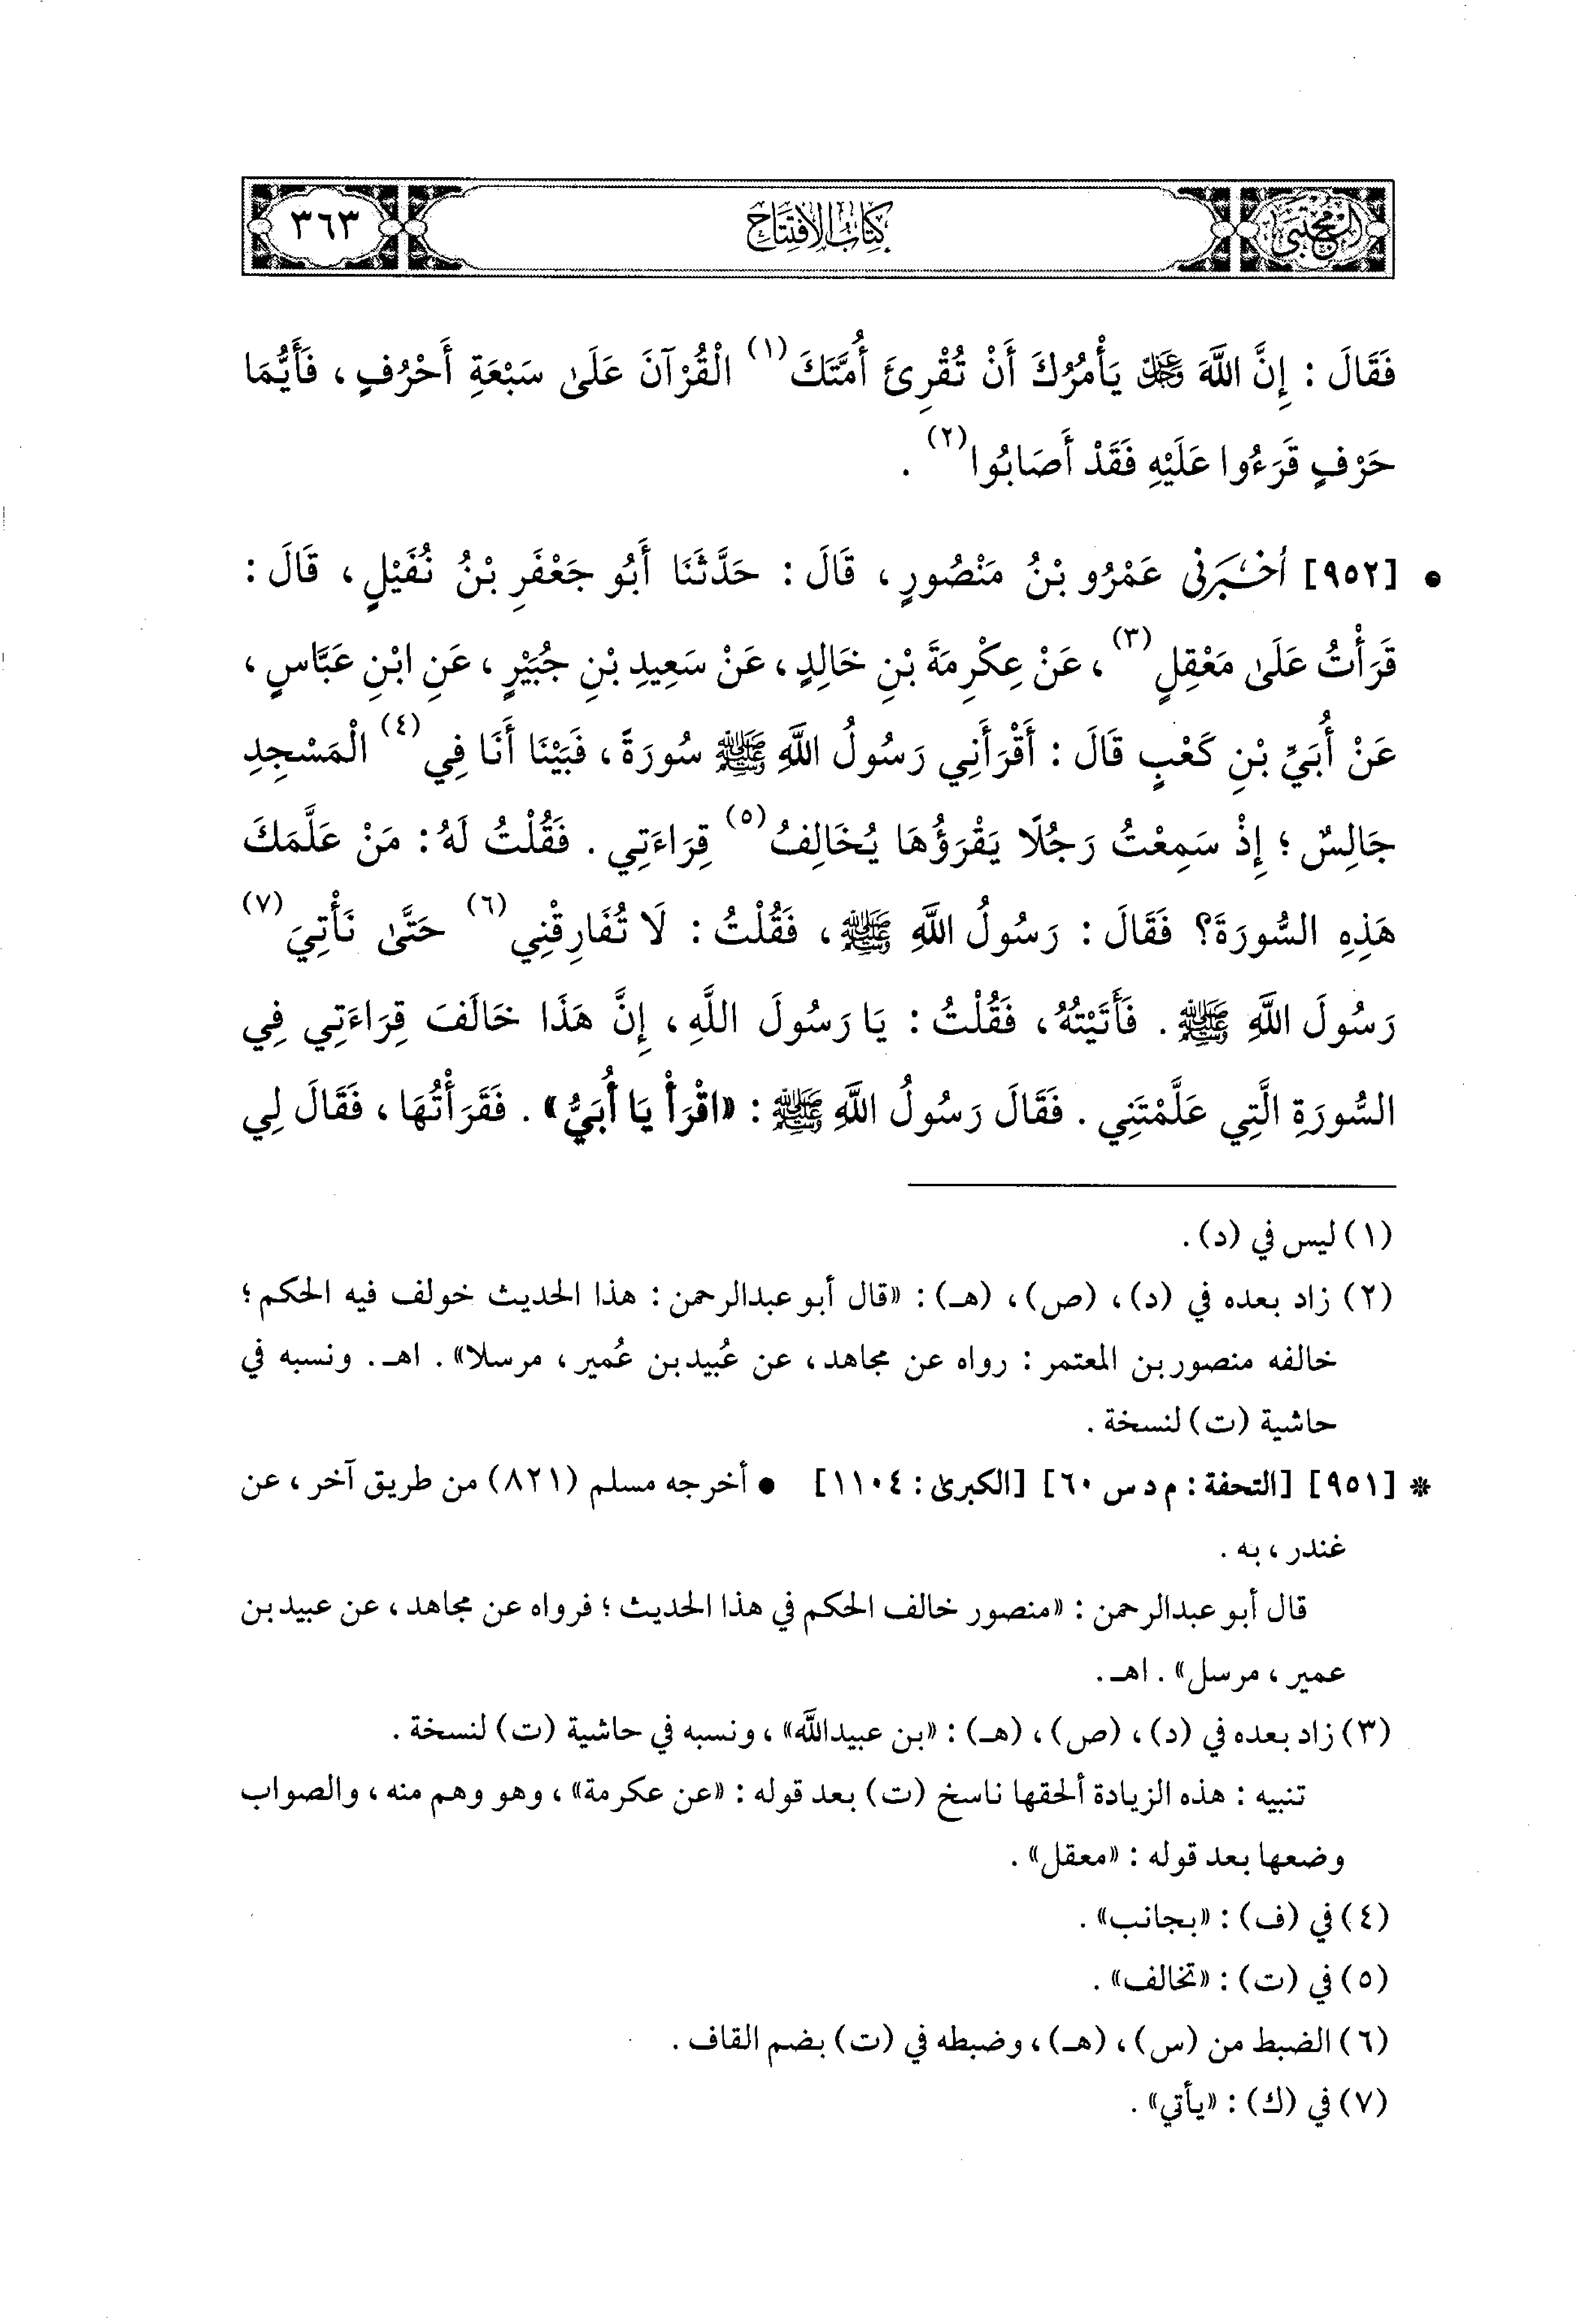 المجتبى
كتاب الافتتاح
٣٦٣
فَقَالَ : إِنَّ اللَّهَ عَزَّ وَجَلَّ يَأْمُرُكَ أَنْ تُقْرِئَ أُمَّتَكَ(١) الْقُرْآنَ عَلَىٰ سَبْعَةِ أَحْرُفٍ ، فَأَيُّمَا
حَرْفٍ قَرَءُوا عَلَيْهِ فَقَدْ أَصَابُوا(٢) .
• [٩٥٢] أَخْبَرَنِي عَمْرُو بْنُ مَنْصُورٍ ، قَالَ : حَدَّثَنَا أَبُو جَعْفَرِ بْنُ نُفَيْلٍ ، قَالَ :
قَرَأْتُ عَلَىٰ مَعْقِلٍ(٣) ، عَنْ عِكْرِمَةَ بْنِ خَالِدٍ ، عَنْ سَعِيدِ بْنِ جُبَيْرٍ ، عَنِ ابْنِ عَبَّاسٍ ،
عَنْ أُبَيِّ بْنِ كَعْبٍ قَالَ : أَقْرَأَنِي رَسُولُ اللَّهِ ﷺ سُورَةً ، فَبَيْنَا أَنَا فِي(٤) الْمَسْجِدِ
جَالِسٌ ؛ إِذْ سَمِعْتُ رَجُلًا يَقْرَؤُهَا يُخَالِفُ(٥) قِرَاءَتِي . فَقُلْتُ لَهُ : مَنْ عَلَّمَكَ
هَذِهِ السُّورَةَ؟ فَقَالَ : رَسُولُ اللَّهِ ﷺ ، فَقُلْتُ : لَا تُفَارِقْنِي(٦) حَتَّىٰ نَأْتِيَ(٧)
رَسُولَ اللَّهِ ﷺ . فَأَتَيْتُهُ ، فَقُلْتُ : يَا رَسُولَ اللَّهِ ، إِنَّ هَذَا خَالَفَ قِرَاءَتِي فِي
السُّورَةِ الَّتِي عَلَّمْتَنِي . فَقَالَ رَسُولُ اللَّهِ ﷺ : «اقْرَأْ يَا أُبَيُّ» . فَقَرَأْتُهَا ، فَقَالَ لِي
(١) ليس في (د) .
(٢) زاد بعده في (د) ، (ص) ، (هـ) : «قال أبو عبدالرحمن : هذا الحديث خولف فيه الحكم ؛
خالفه منصور بن المعتمر : رواه عن مجاهد ، عن عُبيد بن عُمير ، مرسلا» . اهـ . ونسبه في
حاشية (ت) لنسخة .
* [٩٥١] [التحفة : م د س ٦٠] [الكبرى : ١١٠٤] • أخرجه مسلم (٨٢١) من طريق آخر ، عن
غندر ، به .
قال أبو عبدالرحمن : «منصور خالف الحكم في هذا الحديث ؛ فرواه عن مجاهد ، عن عبيد بن
عمير ، مرسل» . اهـ .
(٣) زاد بعده في (د) ، (ص) ، (هـ) : «بن عبيدالله» ، ونسبه في حاشية (ت) لنسخة .
تنبيه : هذه الزيادة ألحقها ناسخ (ت) بعد قوله : «عن عكرمة» ، وهو وهم منه ، والصواب
وضعها بعد قوله : «معقل» .
(٤) في (ف) : «بجانب» .
(٥) في (ت) : «تخالف» .
(٦) الضبط من (س) ، (هـ) ، وضبطه في (ت) بضم القاف .
(٧) في (ك) : «يأتي» .